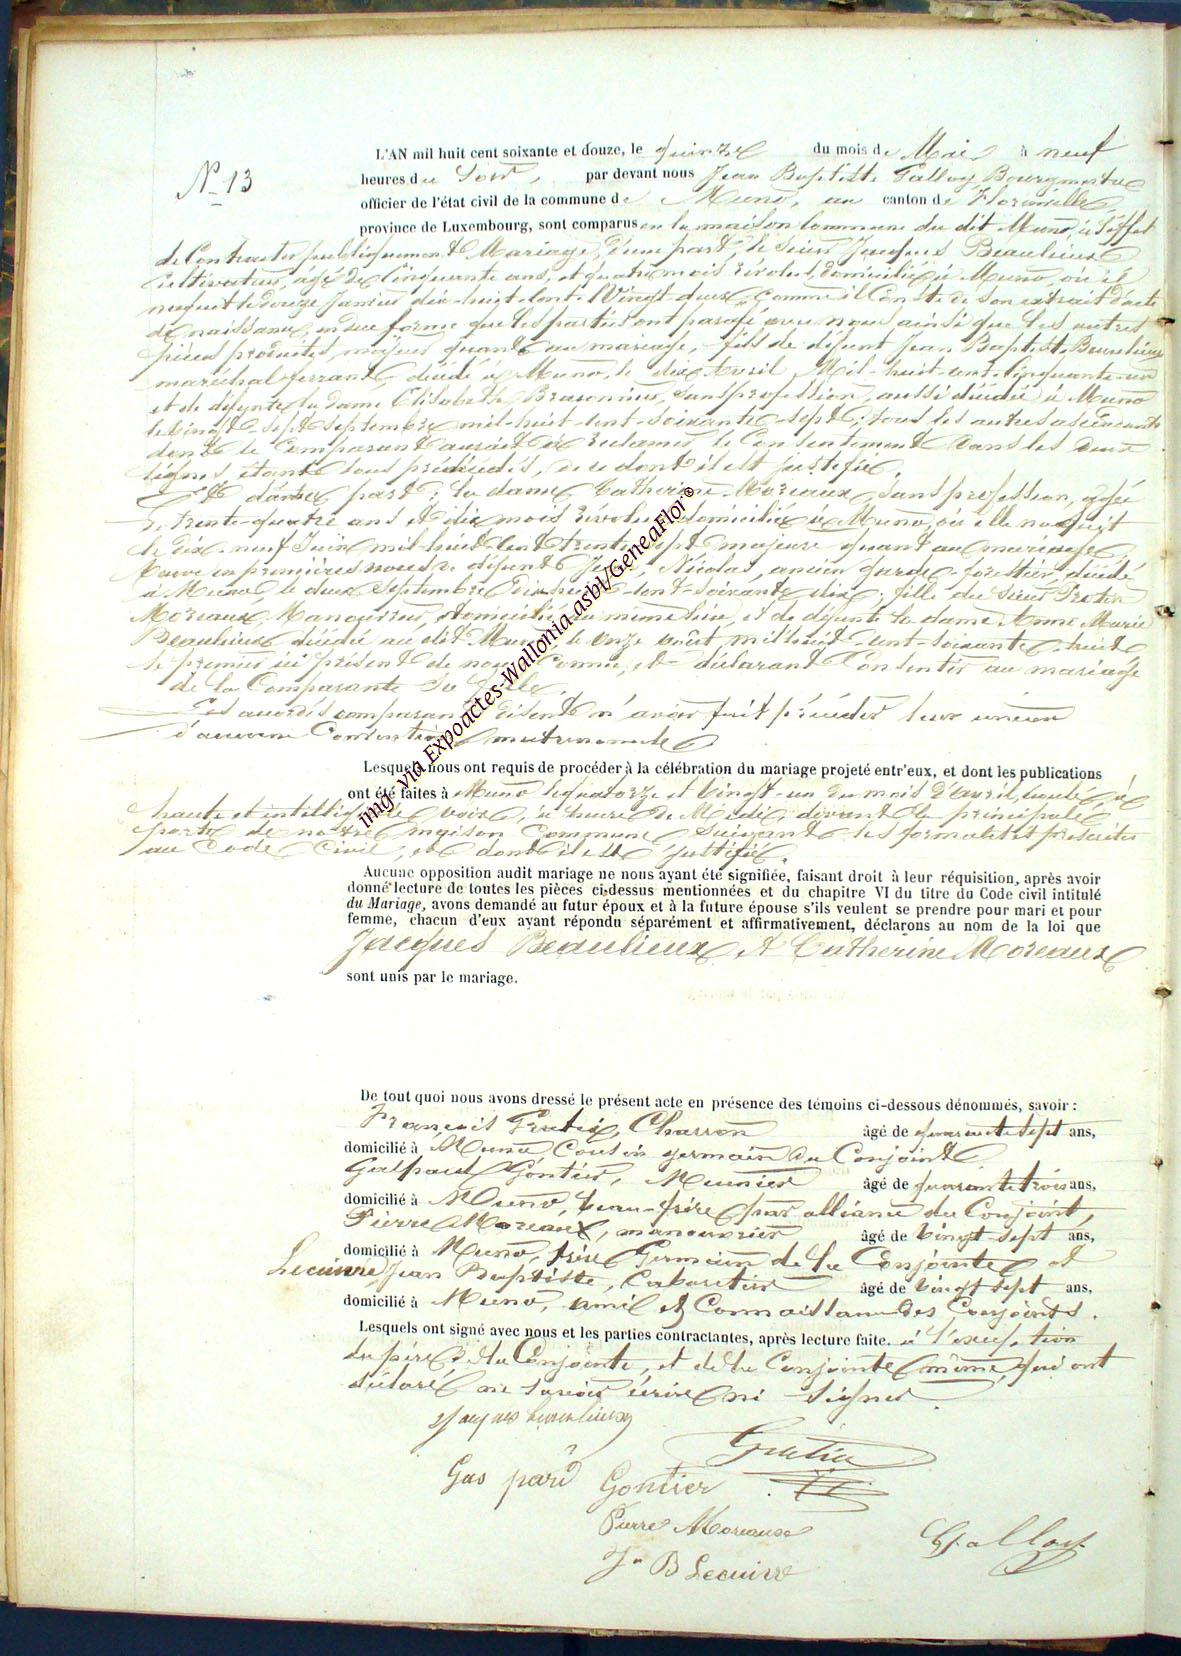 N° 13
L'AN mil huit cent soixante et douze, le quinze du mois de Mai à neuf
heures du Soir, par devant nous Jean Baptiste Galloy, Bourgmestre
officier de l'état civil de la commune de Muno, au canton de Florenville
province de Luxembourg, sont comparus en la maison Commune du dit Muno, à l'effet
de Contracter publiquement Mariage, d'une part, le Sieur Jacques Beaulieux
Cultivateur, âgé de Cinquante ans, et quatre mois révolus, domicilié à Muno, où il
naquit le douze Janvier dix-huit-Cent-Vingt-deux, comme il Conste de son extrait d'acte
de naissance, en due forme que les parties ont parafé avec nous ainsi que les autres
pièces produites, majeur quant au mariage, fils de défunt Jean Baptiste Beaulieux
maréchal ferrant décédé à Muno, le dix Avril Mil-huit-cent-cinquante-un
et de défunte la dame Elisabeth Brasonnier, Sans profession, aussi décédée à Muno
le vingt-sept septembre mil-huit-cent-soixante-sept; tous les autres ascendants
dont le Comparant aurait à réclamer le Consentement dans les deux
lignes étant tous prédécédés, de ce dont il est justifié.
Et d'autre part; la dame Catherine Moreaux, Sans profession, âgée
de trente-quatre ans et dix mois révolus, domiciliée à Muno, où elle naquit
le dix-neuf Juin mil-huit-Cent-trente-sept majeure quant au mariage,
Veuve en premières noces de défunt Nicolas, ancien garde-forestier, décédé
à Muno le deux Septembre Dix-huit-Cent-Soixante-dix; fille du Sieur
Moreaux, Manouvrier, domicilié au même lieu, et de défunte la dame Anne Marie
Beaulieux décédée au dit Muno le onze août mil huit cent-soixante-huit
le premier ici présent de nous Connu, et déclarant Consentir au mariage
de la Comparante Sa fille.
Les susdits comparants disent n'avoir fait précéder leur union
d'aucune Convention matrimoniale
Lesquels nous ont requis de procéder à la célébration du mariage projeté entr'eux, et dont les publications
ont été faites à Muno le quatorze et Vingt-un du mois d'Avril, écoulé, à
haute et intelligible voix, à heure de Midi, devant la principale
porte de notre maison Commune Suivant les formalités prescrites
au Code Civil, et dont il est justifié.
Aucune opposition audit mariage ne nous ayant été signifiée, faisant droit à leur réquisition, après avoir
donné lecture de toutes les pièces ci-dessus mentionnées et du chapitre VI du titre du Code civil intitulé
du Mariage, avons demandé au futur époux et à la future épouse s'ils veulent se prendre pour mari et pour
femme, chacun d'eux ayant répondu séparément et affirmativement, déclarons au nom de la loi que
Jacques Beaulieux, et Catherine Moreaux
sont unis par le mariage.
De tout quoi nous avons dressé le présent acte en présence des témoins ci-dessous dénommés, savoir :
François Charron âgé de quarante sept ans,
domicilié à Muno Cousin germain du Conjoint
Gaspard Gontier, Meunier âgé de quarante trois ans,
domicilié à Muno, beau-frère par alliance du Conjoint,
Pierre Moreaux, manouvrier âgé de Vingt-sept ans,
domicilié à Muno, frère Germain de la Conjointe et
Lecuivre, Jean Baptiste, Cabaretier âgé de Vingt sept ans,
domicilié à Muno, ami et Connaissance des Conjoints.
Lesquels ont signé avec nous et les parties contractantes, après lecture faite. à l'exception
du père de la Conjointe, et de la Conjointe même, qui ont
déclaré ne savoir écrire ni signer.
Jacques beaulieux
Gas pard Gontier
Pierre Moreaux
J n B Lecuivre
Galloy
img via Expoactes-Wallonia asbl/GeneaFlor©